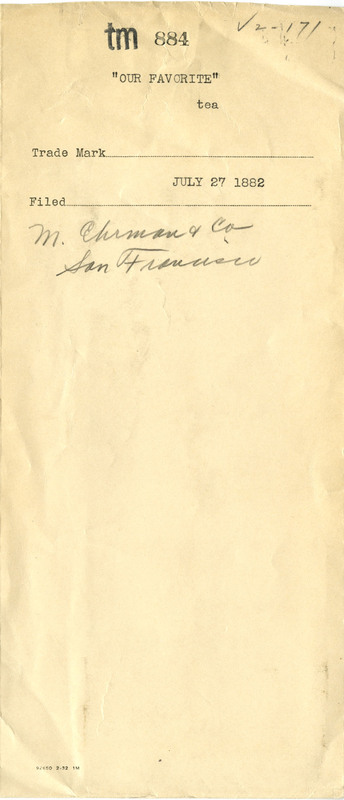 tm 884
V2-171
"OUR FAVORITE"
tea
Trade Mark
JULY 27 1882
Filed
M. Ehrman & Co
San Francisco
2-32 1M